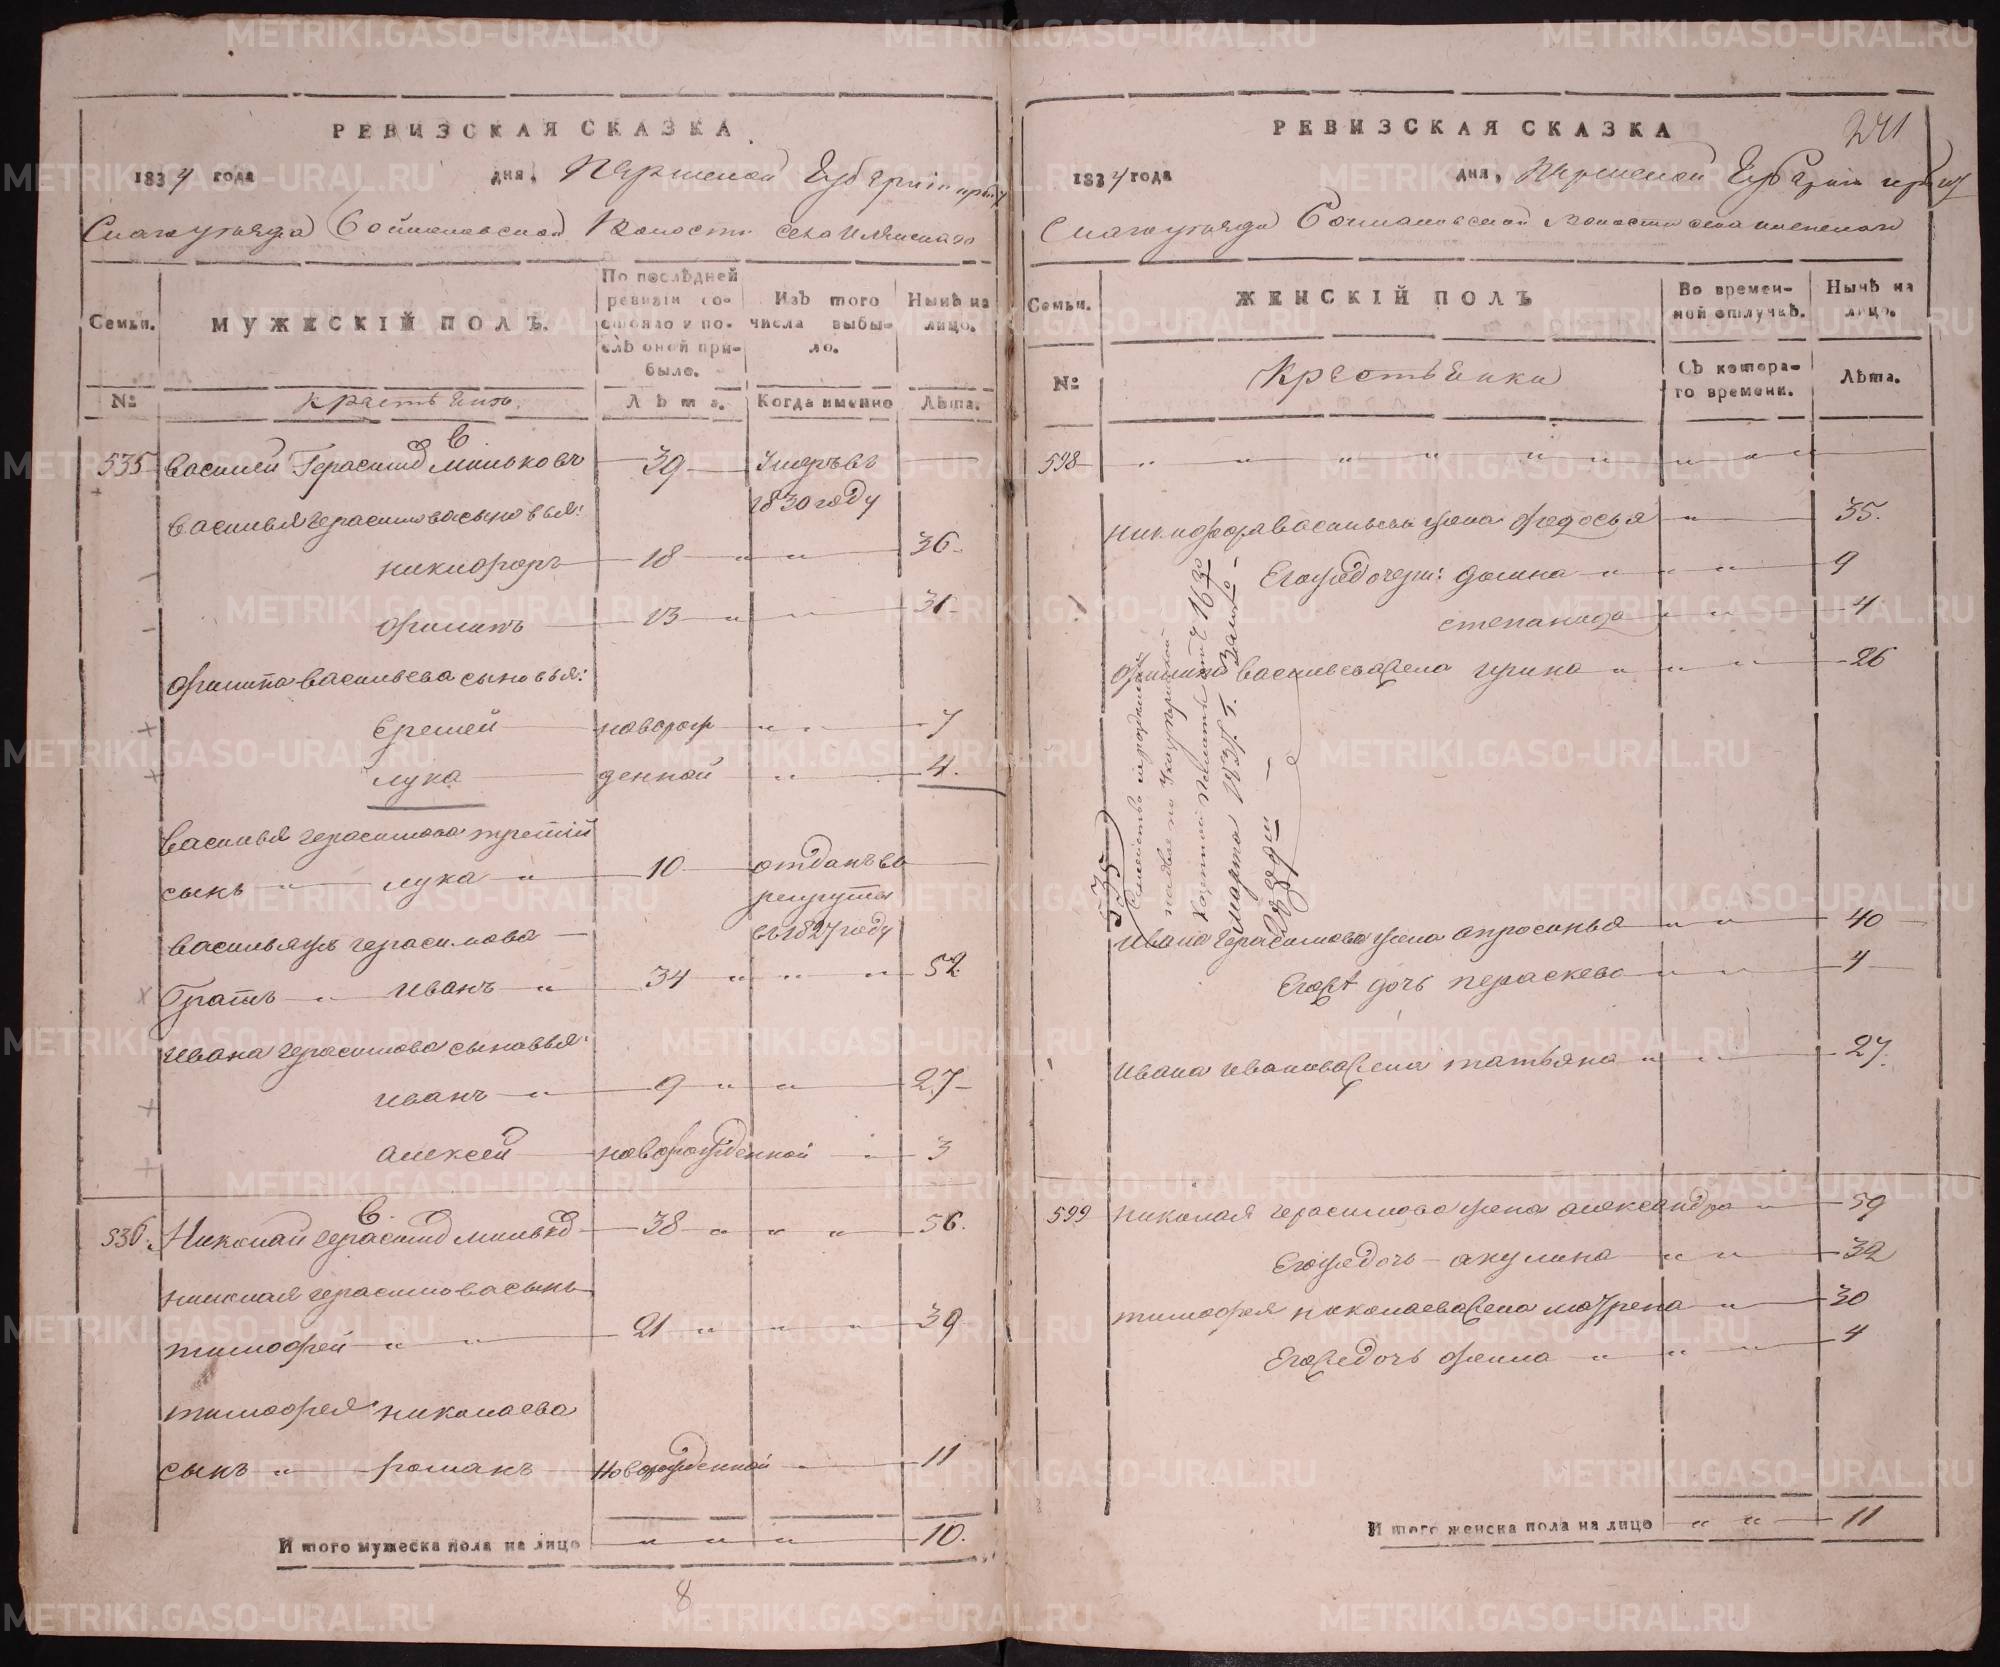 РЕВИЗСКАЯ СКАЗКА
1834 года дня, Пермской Губернии
уезда Волости села
Семьи.
МУЖЕСКІЙ ПОЛЪ.
По послѣдней ревизіи состояло и послѣ оной прибыло.
Изъ того числа выбыло.
Нынѣ на лицо.
№
крестьяне
Лѣта.
Когда именно
Лѣта.
535 василей Герасимов Миньковъ 39 Умеръ въ
1830 году
василья герасимова сыновья:
никифоръ 18 " " 36
филипъ 13 " " 31
филипа васильева сыновья:
Еремей новорож " " 7
лука денной " 4.
василья герасимова третій
сынъ " лука " 10 отданъ в
рекруты
въ 1827 году
василья герасимова
братъ " иванъ " 34 " " " 52
ивана герасимова сыновья:
иванъ " 9 " " 27
алексей новорожденной " 3
536. Николай герасимов миньков 38 " " " 56.
николая герасимова сынъ
тимофей " " 21 " " " 39
тимофея николаева
сынъ " романъ новорожденной " 11
И того мужеска пола на лицо " " " 10.
8
РЕВИЗСКАЯ СКАЗКА
241
1834 года дня, Пермской Губернии
уезда волости села
Семьи.
ЖЕНСКІЙ ПОЛЪ
Во временной отлучкѣ.
Нынѣ на лицо.
№
Крестьянки
Съ котораго времени.
Лѣта.
598 " " " " " " " " " "
никифора васильева жена федосья " 35.
Егожъ дочери: домна " " " 9
степанида " " 4
филипа васильева жена ирина " " " 26
535
Семейство
марта
ивана герасимова жена апросинья " " 40
Его дочь параскева " " 4
ивана иванова жена татьяна " " 27.
599 николая герасимова жена александра " 59
Егожъ дочь акулина " " 32
тимофея николаева жена матрена " 30
Его дочь фекла " " " 4
И того женска пола на лицо " " 11
METRIKI.GASO-URAL.RU